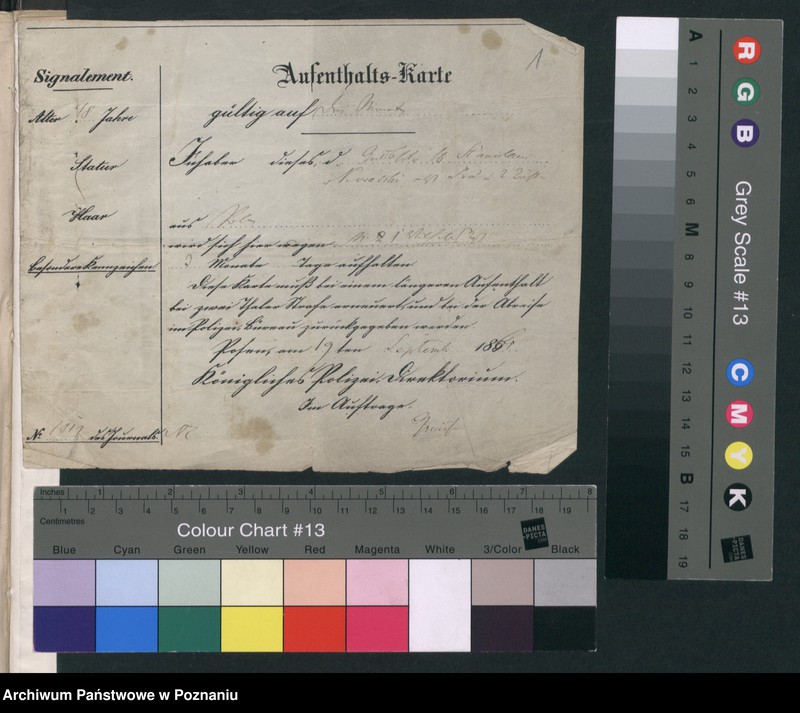 1
Aufenthalts-Karte
gültig auf
Inhaber dieses, d.
aus
wird sich hier wegen
3 Monate Tage aufhalten
Diese Karte muß bei einem längeren Aufenthalt
bei zwei Thaler Strafe erneuert, und bei der Abreise
im Polizei-Büreau zurückgegeben werden.
Posen, am 19 ten Septemb. 186
Königliches Polizei-Direktorium.
Im Auftrage.
Signalement.
Alter 48 Jahre
Statur
Haar
Besondere Kennzeichen
No. des Journals.
Inches 1 2 3 4 5 6 7 8
1 2 3 4 5 6 7 8 9 10 11 12 13 14 15 16 17 18 19
Centimetres
Colour Chart #13
DANES
-PICTA
.COM
Blue Cyan Green Yellow Red Magenta White 3/Color Black
A 1 2 3 4 5 6 M 8 9 10 11 12 13 14 15 B 17 18 19
R G B
Grey Scale #13
C M Y K
DANES
-PICTA
.COM
Archiwum Państwowe w Poznaniu